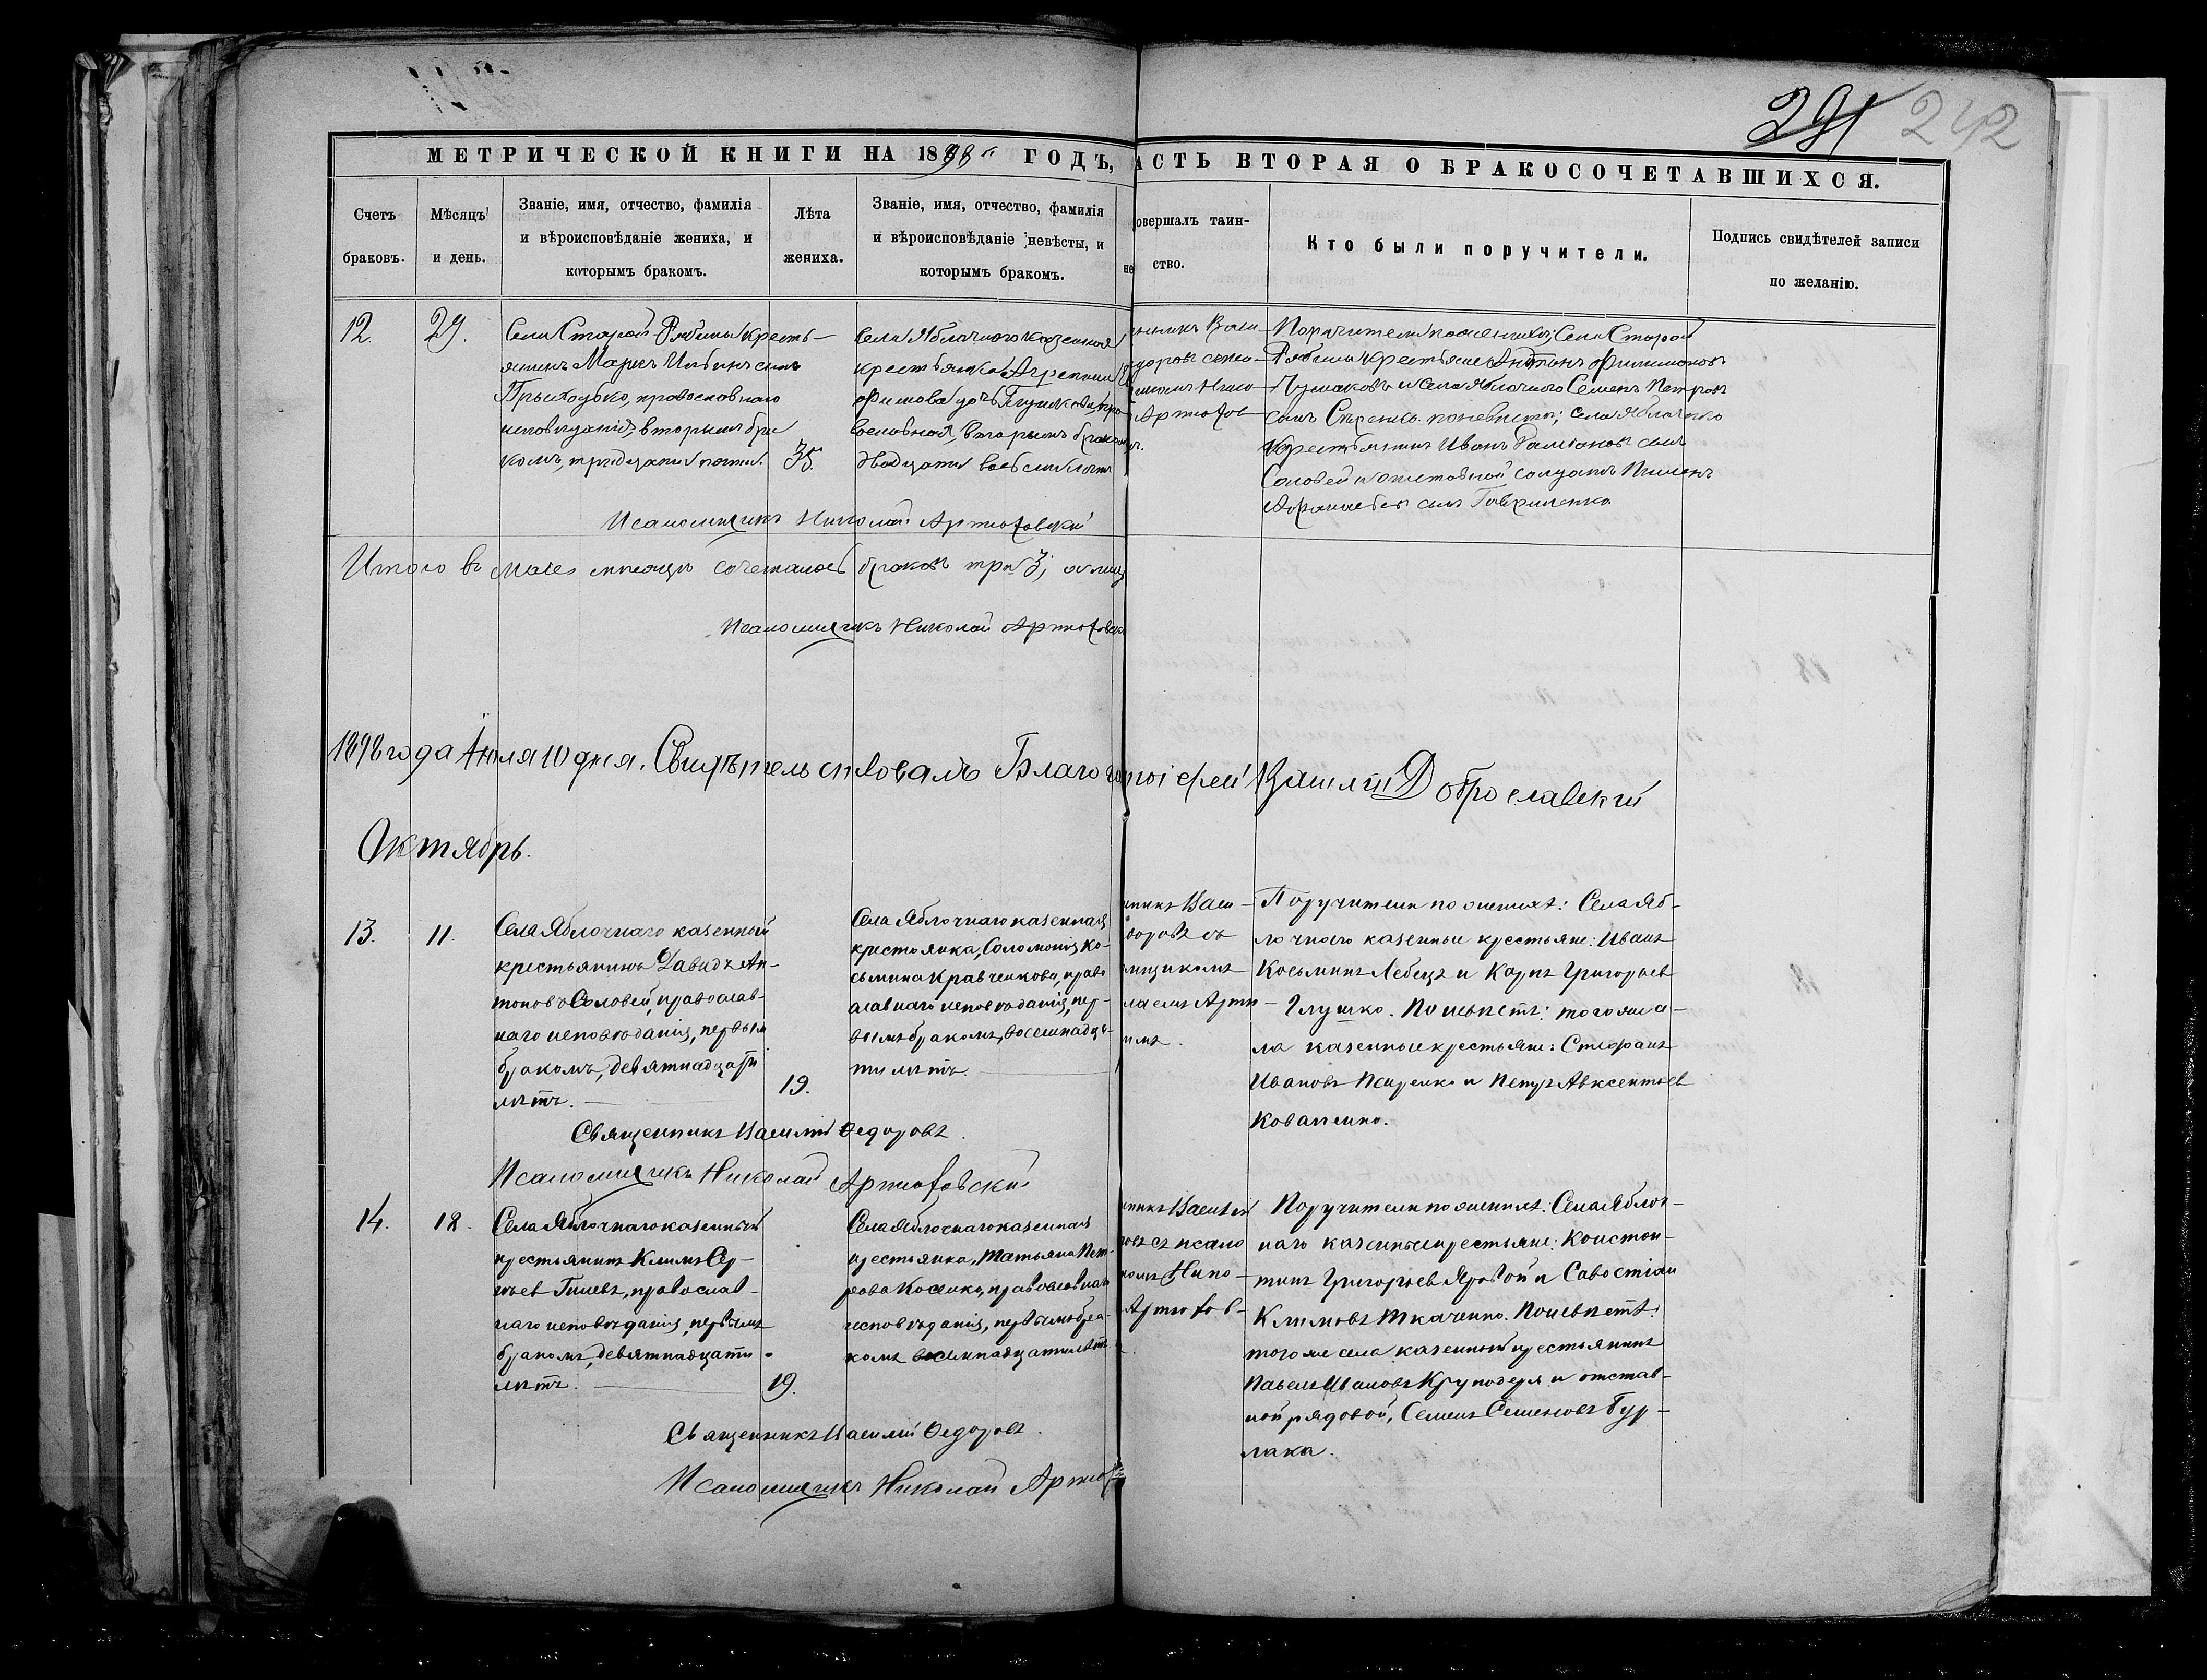 291 242
МЕТРИЧЕСКОЙ КНИГИ НА 1898 ГОДЪ,
АСТЬ ВТОРАЯ О БРАКОСОЧЕТАВШИХСЯ.
Счетъ браковъ.
Мѣсяцъ и день.
Званіе, имя, отчество, фамилія
и вѣроисповѣданіе жениха, и
которымъ бракомъ.
Лѣта
жениха.
Званіе, имя, отчество, фамилія
и вѣроисповѣданіе невѣсты, и
которымъ бракомъ.
не
овершалъ таин-
ство.
Кто были поручители.
Подпись свидѣтелей записи
по желанію.
12.
29.
Села Старой Рябины кресть-
янинъ Маркъ Ильинъ сынъ
православнаго
исповѣданія, вторымъ бра
комъ, тридцати пяти.
35.
Села Яблочнаго казенная
крестьянка Агрепина
дочь пра
вославной, вторымъ бракомъ
двадцати восьми лѣтъ
никъ Васи-
доровъ съ
Нико-
Артюхов
Поручители по женихѣ; Села Старой
Рябины крестьяне Антонъ Филимоновъ
и села Яблочнаго Семенъ Петровъ
сынъ по невѣсте; села Яблочнаго
крестьянинъ Иванъ Даміановъ сынъ
Соловей и отставной солдатъ Пименъ
сынъ Гавриленко
Псаломщикъ Николай Артюховскій
Итого въ мае мѣсяце сочеталось браковъ три 3;
Псаломщикъ Николай Артюховск
1898 года Іюля 10 дня. Свидѣтельствовалъ Благоч іерей Василій Доброславскій
Октябрь.
13.
11.
Села Яблочнаго казенный
крестьянинъ Давидъ Ан-
тоновъ Соловей, православ-
наго исповѣданія, первым
бракомъ, девятнадцати
лѣтъ.
19.
Села Яблочнаго казенная
крестьянка, Соломонія Ко-
сьмина Кравченкова, право
славнаго исповѣданія, пер-
вымъ бракомъ, восемнадца-
ти лѣтъ.
нникъ Васи-
доровъ съ
мщикомъ
лаемъ Артю-
имъ.
Поручители по женихѣ: Села Яб-
лочнаго казенные крестьяне: Иванъ
Косьминъ Лебедь и Карпъ Григорьев
Глушко. По невѣстѣ: того же се-
ла казенные крестьяне: Стефанъ
Ивановъ и Петръ Авксентьев
Коваленко.
Священникъ Василій Ѳедоровъ.
Псаломщикъ Николай Артюховскій
14.
18.
Села Яблочнаго казенный
крестьянинъ Климъ Сер-
гѣев православ-
наго исповѣданія, первымъ
бракомъ, девятнадцати
лѣтъ.
19.
Села Яблочнаго казенная
крестьянка, Татьяна Пет-
рова православнаго
исповѣданія, первымъ бра-
комъ восемнадцати лѣтъ.
нникъ Василій
ровъ съ псало
комъ Нико-
Артюхов-
Поручители по женихѣ: Села Яблоч-
наго казенные крестьяне: Констан-
тинъ Григорьев Яровой и Савостіан
Климовъ Ткаченко. По невѣстѣ:
того же села казенный крестьянинъ
Павелъ Ивановъ Круподеря и отстав-
ной рядовой, Семенъ Семеновъ Бур-
лака.
Священникъ Василій Ѳедоровъ.
Псаломщикъ Николай Артюх